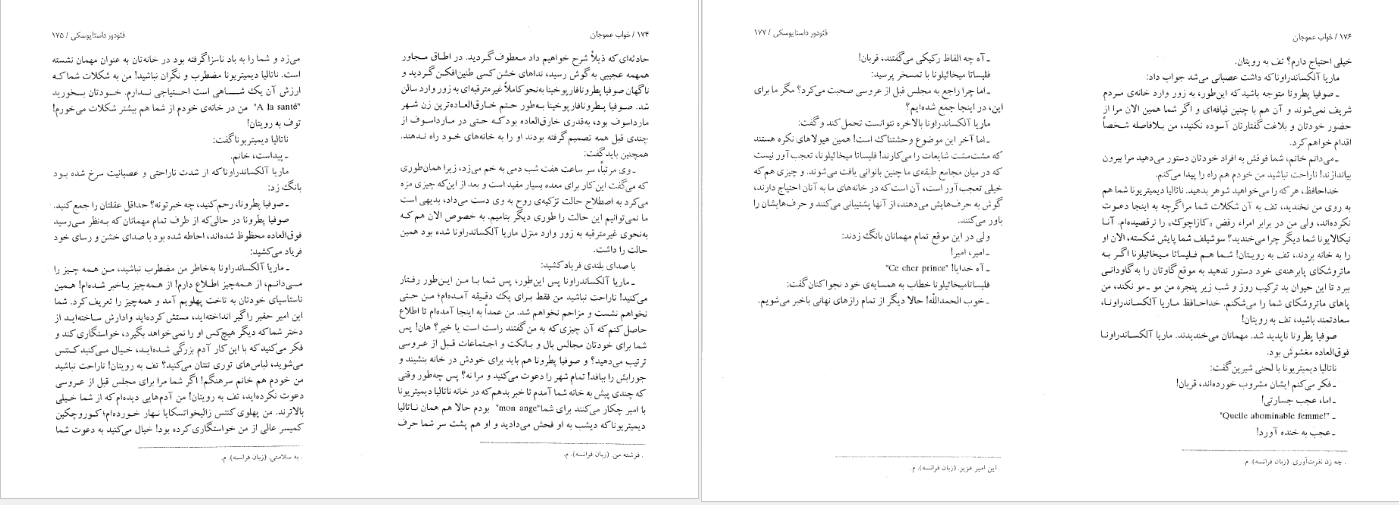 ۱۷۴ / خواب عموجان
حادثه‌ای که ذیلاً شرح خواهیم داد معطوف گردید. در اطاق مجاور
همهمه عجیبی به گوش رسید، نداهای خشن کسی طنین‌افکن گردید و
ناگهان صوفیا پطرونافارپوخینا به‌نحو کاملاً غیرمترقبه‌ای به زور وارد سالن
شد. صوفیا پطرونافارپوخینا به‌طور حتم خارق‌العاده‌ترین زن شهر
مارداسوف بود، به‌قدری خارق‌العاده بود که حتی در مارداسوف از
چندی قبل همه تصمیم گرفته بودند او را به خانه‌های خود راه ندهند.
همچنین باید گفت:
ـ وی مرتباً، سر ساعت هفت شب دمی به خم می‌زد، زیرا همان‌طوری
که می‌گفت این کار برای معده بسیار مفید است و بعد از این‌که چیزی مزه
می‌کرد به اصطلاح حالت تزکیه‌ی روح به وی دست می‌داد، بدیهی است
ما نمی‌توانیم این حالت را طوری دیگر بنامیم. به خصوص الان هم که
به‌نحوی غیرمترقبه به زور وارد منزل ماریا آلکساندراونا شده بود همین
حالت را داشت.
با صدای بلندی فریاد کشید:
ـ ماریا آلکساندراونا پس این‌طور، پس شما با من این‌طور رفتار
می‌کنید! ناراحت نباشید من فقط برای یک دقیقه آمده‌ام؛ من حتی
نخواهم نشست و مزاحم نخواهم شد. من عمداً به اینجا آمده‌ام تا اطلاع
حاصل کنم که آن چیزی که به من گفتند راست است یا خیر؟ هان! پس
شما برای خودتان مجالس بال و بانکت و اجتماعات قبل از عروسی
ترتیب می‌دهید؟ و صوفیا پطرونا هم باید برای خودش در خانه بنشیند و
جورابش را ببافد! تمام شهر را دعوت می‌کنید و مرا نه؟ پس چه‌طور وقتی
که چندی پیش به خانه شما آمدم تا خبر بدهم که در خانه ناتالیا دیمیتریونا
با امیر چکار می‌کنند برای شما "mon ange" بودم حالا هم همان ناتالیا
دیمیتریونا که دیشب به او فحش می‌دادید و او هم پشت سر شما حرف
. فرشته من. (زبان فرانسه). م.
فئودور داستایوسکی / ۱۷۵
می‌زد و شما را به باد ناسزا گرفته بود در خانه‌تان به عنوان مهمان نشسته
است. ناتالیا دیمیتریونا مضطرب و نگران نباشید! من به شکلات شما که
ارزش آن یک شاهی است احتیاجی ندارم. خودتان بخورید
"A la santé" من در خانه‌ی خودم از شما هم بیشتر شکلات می‌خورم!
توف به رویتان!
ناتالیا دیمیتریونا گفت:
ـ پیداست، خانم.
ماریا آلکساندراونا که از شدت ناراحتی و عصبانیت سرخ شده بود
بانگ زد:
ـ صوفیا پطرونا، رحم کنید، چه خبرتونه؟ حداقل عقلتان را جمع کنید.
صوفیا پطرونا در حالی‌که از طرف تمام مهمانان که به‌نظر می‌رسید
فوق‌العاده محظوظ شده‌اند، احاطه شده بود با صدای خشن و رسای خود
فریاد می‌کشید:
ـ ماریا آلکساندراونا به‌خاطر من مضطرب نباشید، من همه چیز را
می‌دانم، از همه‌چیز اطلاع دارم! از همه‌چیز باخبر شده‌ام! همین
ناستاسیای خودتان به تاخت پهلویم آمد و همه‌چیز را تعریف کرد. شما
این امیر حقیر را گیر انداخته‌اید، مستش کرده‌اید و ادارش ساخته‌اید از
دختر شما که دیگر هیچ‌کس او را نمی‌خواهد بگیرد، خواستگاری کند و
فکر می‌کنید که با این کار آدم بزرگی شده‌اید، خیال می‌کنید کنتس
می‌شوید، لباس‌های توری تنتان می‌کنید؟ تف به رویتان! ناراحت نباشید
من خودم هم خانم سرهنگم! اگر شما مرا برای مجلس قبل از عروسی
دعوت نکرده‌اید، تف به رویتان! من آدم‌هایی دیده‌ام که از شما خیلی
بالاترند. من پهلوی کنتس زالیخواتسکایا نهار خورده‌ام؛ کوروچکین
کمیسر عالی از من خواستگاری کرده بود! خیال می‌کنید به دعوت شما
. به سلامتی. (زبان فرانسه). م.
۱۷۶ / خواب عموجان
خیلی احتیاج دارم؟ تف به رویتان.
ماریا آلکساندراونا که داشت عصبانی می‌شد جواب داد:
ـ صوفیا پطرونا متوجه باشید که این‌طور، به زور وارد خانه‌ی مردم
شریف نمی‌شوند و آن هم با چنین قیافه‌ای و اگر شما همین الان مرا از
حضور خودتان و بلاغت گفتارتان آسوده نکنید، من بلافاصله شخصاً
اقدام خواهم کرد.
ـ می‌دانم خانم، شما فوقش به افراد خودتان دستور می‌دهید مرا بیرون
بیاندازند! ناراحت نباشید من خودم هم راه را پیدا می‌کنم.
خداحافظ، هر که را می‌خواهید شوهر بدهید. ناتالیا دیمیتریونا شما هم
به روی من نخندید، تف به آن شکلات شما مرا گرچه به اینجا دعوت
نکرده‌اند، ولی من در برابر امراء رقص «کازاچوک» را نرقصیده‌ام. آنا
نیکالایونا شما دیگر چرا می‌خندید؟ سوشیلف شما پایش شکسته، الان او
را به خانه بردند، تف به رویتان! شما هم فلیساتا میخائیلونا اگر به
ماتروشکای پابرهنه‌ی خود دستور ندهید به موقع گاوتان را به گاودانی
ببرد تا این حیوان بد ترکیب روز و شب زیر پنجره من مو ـ مو نکند، من
پاهای ماتروشکای شما را می‌شکنم. خداحافظ ماریا آلکساندراونا،
سعادتمند باشید، تف به رویتان!
صوفیا پطرونا ناپدید شد. مهمانان می‌خندیدند. ماریا آلکساندراونا
فوق‌العاده مغشوش بود.
ناتالیا دیمیتریونا با لحنی شیرین گفت:
ـ فکر می‌کنم ایشان مشروب خورده‌اند، قربان!
ـ اما، عجب جسارتی!
ـ "Quelle abominable femme!"
ـ عجب به خنده آورد!
. چه زن نفرت‌آوری. (زبان فرانسه). م.
فئودور داستایوسکی / ۱۷۷
ـ آه چه الفاظ رکیکی می‌گفتند، قربان!
فلیساتا میخائیلونا با تمسخر پرسید:
ـ اما چرا راجع به مجلس قبل از عروسی صحبت می‌کرد؟ مگر ما برای
این، در اینجا جمع شده‌ایم؟
ماریا آلکساندراونا بالاخره نتوانست تحمل کند و گفت:
ـ اما آخر این موضوع وحشتناک است! همین هیولاهای نکره هستند
که مشت‌مشت شایعات را می‌کارند! فلیساتا میخائیلونا، تعجب‌آور نیست
که در میان مجامع طبقه‌ی ما چنین بانوانی یافت می‌شوند. و چیزی هم که
خیلی تعجب‌آور است، آن است که در خانه‌های ما به آنان احتیاج دارند،
گوش به حرف‌هایش می‌دهند، از آنها پشتیبانی می‌کنند و حرف‌هایشان را
باور می‌کنند.
ولی در این موقع تمام مهمانان بانگ زدند:
ـ امیر، امیر!
ـ آه خدایا! "Ce cher prince"
فلیساتامیخائیلونا خطاب به همسایه‌ی خود نجوا کنان گفت:
ـ خوب الحمدالله! حالا دیگر از تمام رازهای نهانی باخبر می‌شویم.
این امیر عزیز. (زبان فرانسه). م.